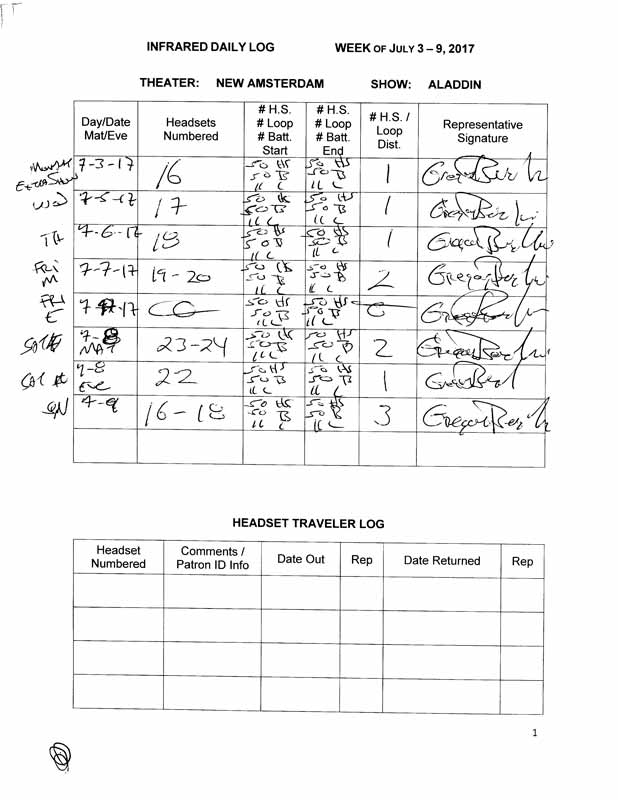 INFRARED DAILY LOG WEEK OF JULY 3 – 9, 2017
THEATER: NEW AMSTERDAM SHOW: ALADDIN
Day/Date Mat/Eve Headsets Numbered # H.S. # Loop # Batt. Start # H.S. # Loop # Batt. End # H.S. / Loop Dist. Representative Signature
7-3-17 16 50 HS 50 B 11 C 50 HS 50 B 11 C 1
WED 7-5-17 17 50 HS 50 B 11 C 50 HS 50 B 11 C 1
TH 7-6-17 18 50 HS 50 B 11 C 50 HS 50 B 11 C 1
FRI M 7-7-17 19-20 50 HS 50 B 11 C 50 HS 50 B 11 C 2
FRI E 7-7-17 50 HS 50 B 11 C 50 HS 50 B 11 C
SAT 7-8 MAT 23-24 50 HS 50 B 11 C 50 HS 50 B 11 C 2
SAT 7-8 Eve 22 50 HS 50 B 11 C 50 HS 50 B 11 C 1
SUN 7-9 16-18 50 HS 50 B 11 C 50 HS 50 B 11 C 3
HEADSET TRAVELER LOG
Headset Numbered Comments / Patron ID Info Date Out Rep Date Returned Rep
1